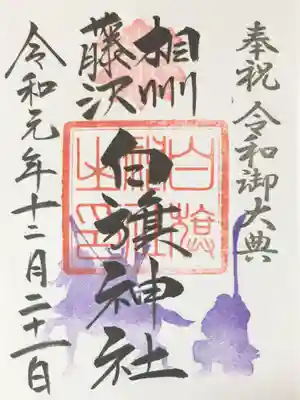 奉祝 令和御大典
相州
藤沢
白旗神社
令和元年十二月二十一日